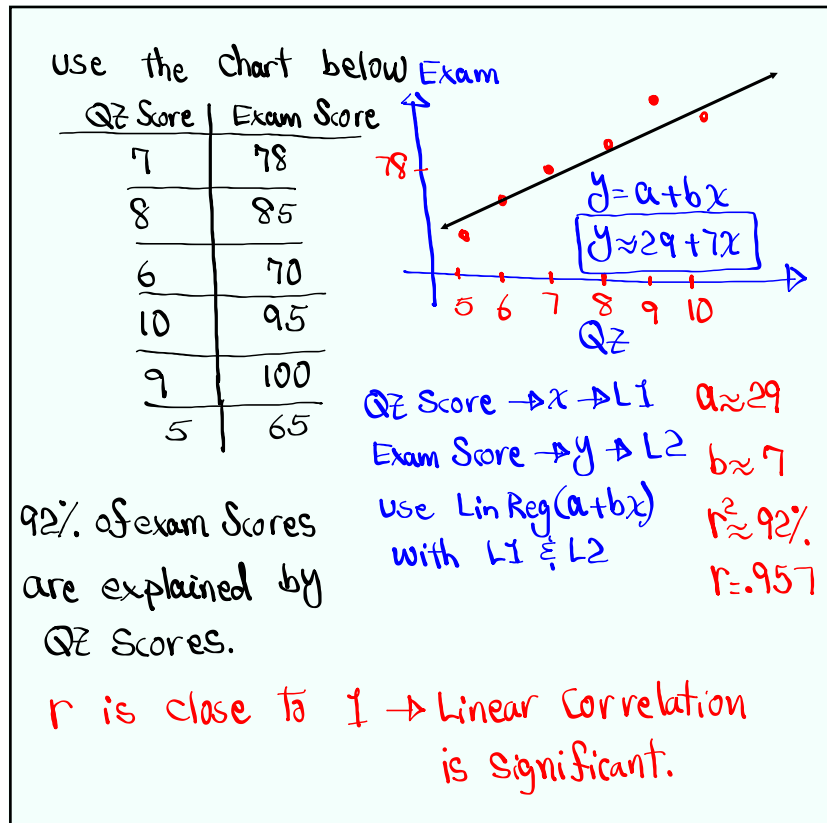 use the chart below
QZ Score | Exam Score
7 | 78
8 | 85
6 | 70
10 | 95
9 | 100
5 | 65
Exam
78
y=a+bx
y≈29+7x
5 6 7 8 9 10
QZ
QZ Score → x → L1
Exam Score → y → L2
use LinReg(a+bx)
with L1 & L2
a≈29
b≈7
r²≈92%
r=.957
92% of exam Scores
are explained by
QZ Scores.
r is close to 1 → Linear Correlation
is significant.